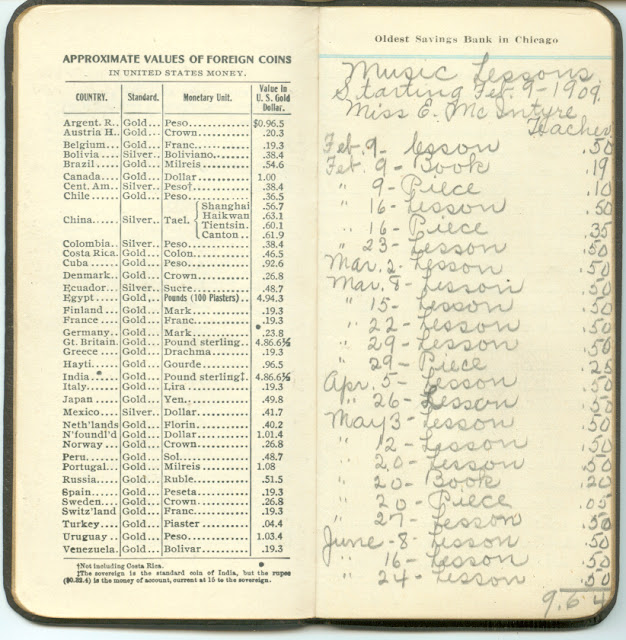 APPROXIMATE VALUES OF FOREIGN COINS
IN UNITED STATES MONEY.
COUNTRY. Standard. Monetary Unit. Value in U. S. Gold Dollar.
Argent. R.. Gold... Peso............ $0.96.5
Austria H.. Gold... Crown............ .20.3
Belgium.... Gold... Franc............ .19.3
Bolivia.... Silver.. Boliviano......... .38.4
Brazil..... Gold... Milreis........... .54.6
Canada..... Gold... Dollar........... 1.00
Cent. Am.. Silver.. Peso†............ .38.4
Chile...... Gold... Peso............. .36.5
China...... Silver.. Tael. { Shanghai .56.7
Haikwan .63.1
Tientsin. .60.1
Canton .. .61.9
Colombia.. Silver.. Peso............. .38.4
Costa Rica. Gold... Colon............ .46.5
Cuba ..... Gold... Peso............. .92.6
Denmark... Gold... Crown............ .26.8
Ecuador.... Silver.. Sucre............ .48.7
Egypt ..... Gold... Pounds (100 Piasters).. 4.94.3
Finland ... Gold... Mark............. .19.3
France .... Gold... Franc............ .19.3
Germany.. Gold... Mark............. .23.8
Gt. Britain. Gold... Pound sterling.. 4.86.6½
Greece .... Gold... Drachma.......... .19.3
Hayti...... Gold... Gourde........... .96.5
India...... Gold... Pound sterling‡. 4.86.6½
Italy...... Gold... Lira............. .19.3
Japan ..... Gold... Yen.............. .49.8
Mexico .... Silver.. Dollar........... .41.7
Neth'lands Gold... Florin........... .40.2
N'foundl'd Gold... Dollar........... 1.01.4
Norway ... Gold... Crown............ .26.8
Peru....... Gold... Sol.............. .48.7
Portugal... Gold... Milreis 1.08
Russia..... Gold... Ruble............ .51.5
Spain...... Gold... Peseta........... .19.3
Sweden.... Gold... Crown............ .26.8
Switz'land Gold... Franc............ .19.3
Turkey.... Gold... Piaster .04.4
Uruguay .. Gold... Peso............. 1.03.4
Venezuela. Gold... Bolivar.......... .19.3
†Not including Costa Rica.
‡The sovereign is the standard coin of India, but the rupee
($0.32.4) is the money of account, current at 15 to the sovereign.
Oldest Savings Bank in Chicago
Music Lessons
Starting Feb. 9-1909.
Miss E. McIntyre
Teacher
Feb 9- Lesson .50
Feb. 9- Book .19
" 9- Piece .10
" 16- Lesson .50
" 16- Piece .35
" 23- Lesson .50
Mar. 2- Lesson .50
Mar. 8- Lesson .50
" 15- Lesson .50
" 22- Lesson .50
" 29- Lesson .50
" 29- Piece .25
Apr. 5- Lesson .50
" 26- Lesson .50
May 3- Lesson .50
" 12- Lesson .50
" 20- Lesson .50
" 20- Book .20
" 20- Piece .05
" 27- Lesson .50
June -8- Lesson .50
" 16- Lesson .50
" 24- Lesson .50
9.64